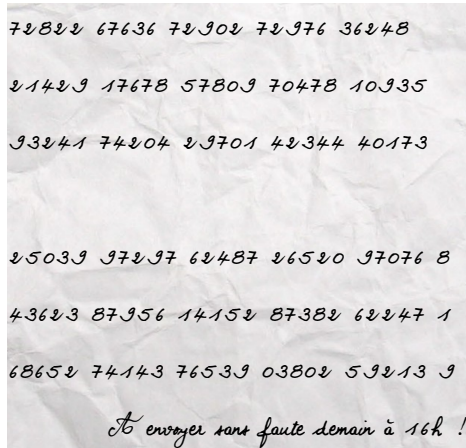 72822 67636 72902 72976 36248
21429 17678 57809 70478 10935
93241 74204 29701 42344 40173
25039 97297 62487 26520 97076 8
43623 87956 14152 87382 62247 1
68652 74143 76539 03802 59213 9
A envoyer sans faute demain à 16h !